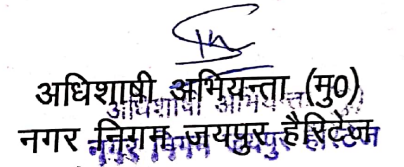 अधिशाषी अभियन्ता (मु0)
नगर निगम जयपुर हैरिटेज
अधिशाषी अभियन्ता (मु0)
नगर निगम जयपुर हैरिटेज